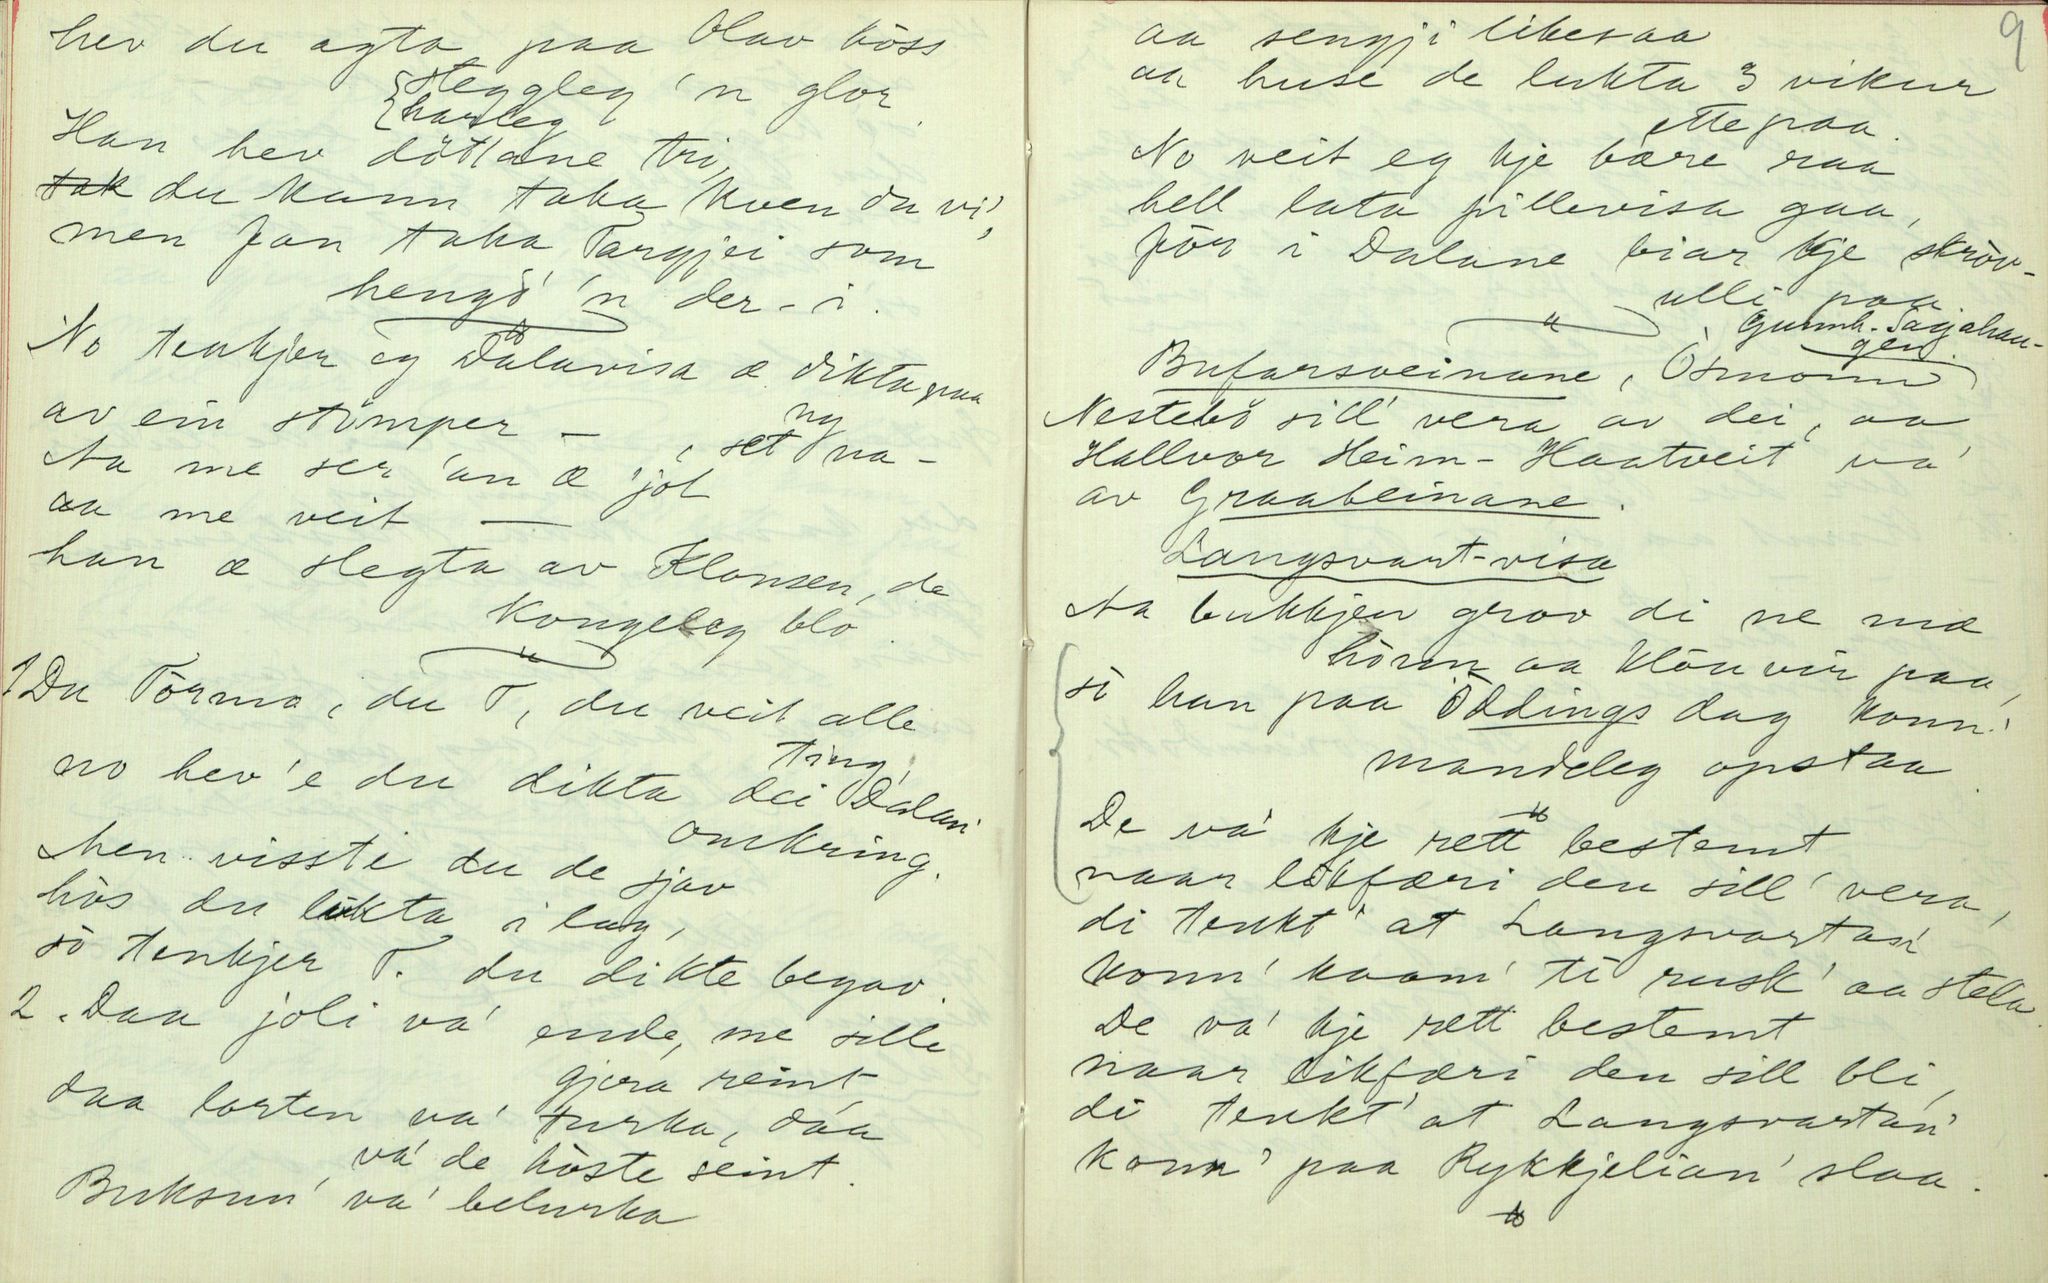 hev du agta paa Olav höss
steggleg 'n glor.
harleg
Han hev döttane tri,
tak du kann taka kven du vi',
men fan taka Targjei som
hengd' 'n der-i.
No tenkjer eg Dalavisa æ dikta paa
ny
av ein stimper —
Aa me ser 'an æ jol, set na-
aa me veit —
han æ slegta av Klonsen, de
kongeleg blo.
1 Du Tórmo, du T, du veit alle
ting,
no hev 'e du dikta dei Dalan'
omkring.
Men vissti du de sjav
hòs du lukta i lag,
sò tenkjer T. du dikte begav.
2. Daa joli va' ende, me sille
gjera reint
daa lorten va' turka, daa
va' de höste seint.
Buksun' va' belurka
9
aa sengji likesaa
aa huse de lukta 3 vikur
ettepaa.
No veit eg kje bære raa
hell lata fillevisa gaa,
för i Dalane biar kje skröv-
ulli paa.
Gunnh. Tagjahau-
gen
Bufarsveinane, Òsmonn
Nestebö sill' vera av dei, aa
Hallvor Heim-Haatveit va'
av Graabeinane.
Langsvart-visa
Aa bukkjen grov di ne mæ
hònn aa klòuvir paa,
sò han paa Öddings dag konn'
mandeleg opstaa.
De va' kje rett bestemt
naar likfæri den sill' vera,
di tenkt' at Langsvartan'
konn' kaam' ti rusk' aa stela.
De va' kje rett bestemt
naar likfæri den sill bli,
di tenkt' at Langsvartan'
konn' paa Rykkjelian' slaa.